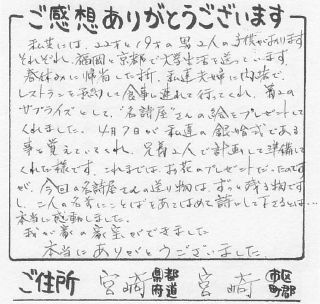 ご感想ありがとうございます
私共には、22才と19才の男2人の子供がおります
それぞれ、福岡、京都で大学生活を送っています。
春休みに帰省した折、私達夫婦に内緒で、
レストランを予約して食事に連れて行ってくれ、
サプライズとして、"名詩屋"さんの絵をプレゼントして
くれました。4月7日が私達の銀婚式である
事を覚えていてくれ、兄弟2人で計画して準備して
くれた様です。これまではお花のプレゼントだったのです
が、今回の名詩屋さんの送り物は、ずっと残る物です
し、二人の名前にことばをあてはめて詩にして下さるとは…
本当に感動しました。
我が家の家宝ができました
本当にありがとうございました
ご住所 宮崎 都道府県 宮崎 市区町郡